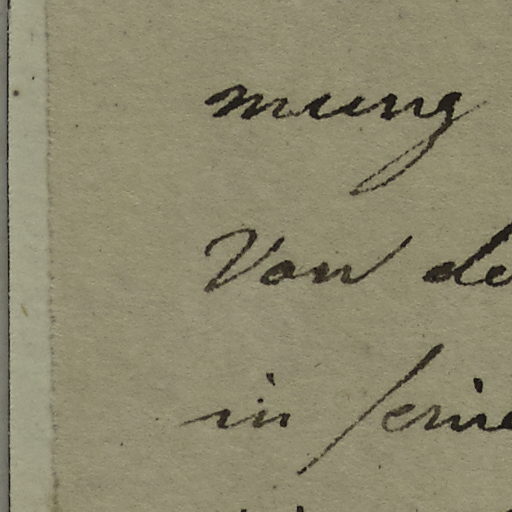 mung
Von de
in seine